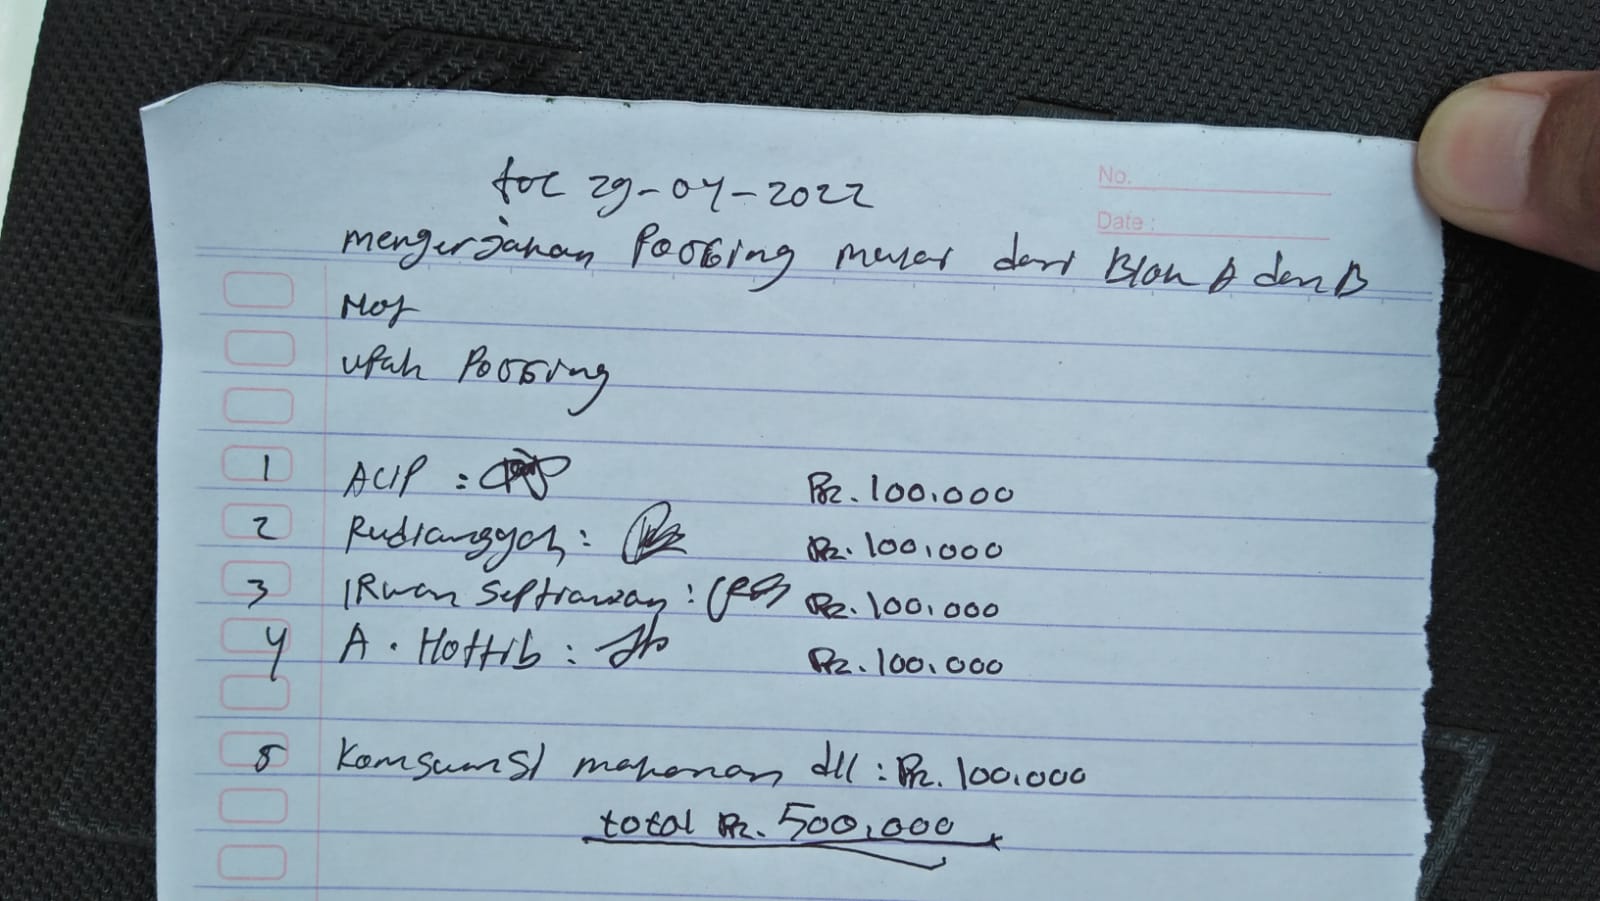 No.
Date :
29-04-2022
mengerjakan Foosing mulai dari Blok A dan B
upah Foosing
1 ACIP : Rp. 100.000
2 Rudianggyah : Rp. 100.000
3 IRwan Septiawan : Rp. 100.000
4 A. Hottib : Rp. 100.000
5 Komsumsi makanan dll : Rp. 100.000
total Rp. 500.000